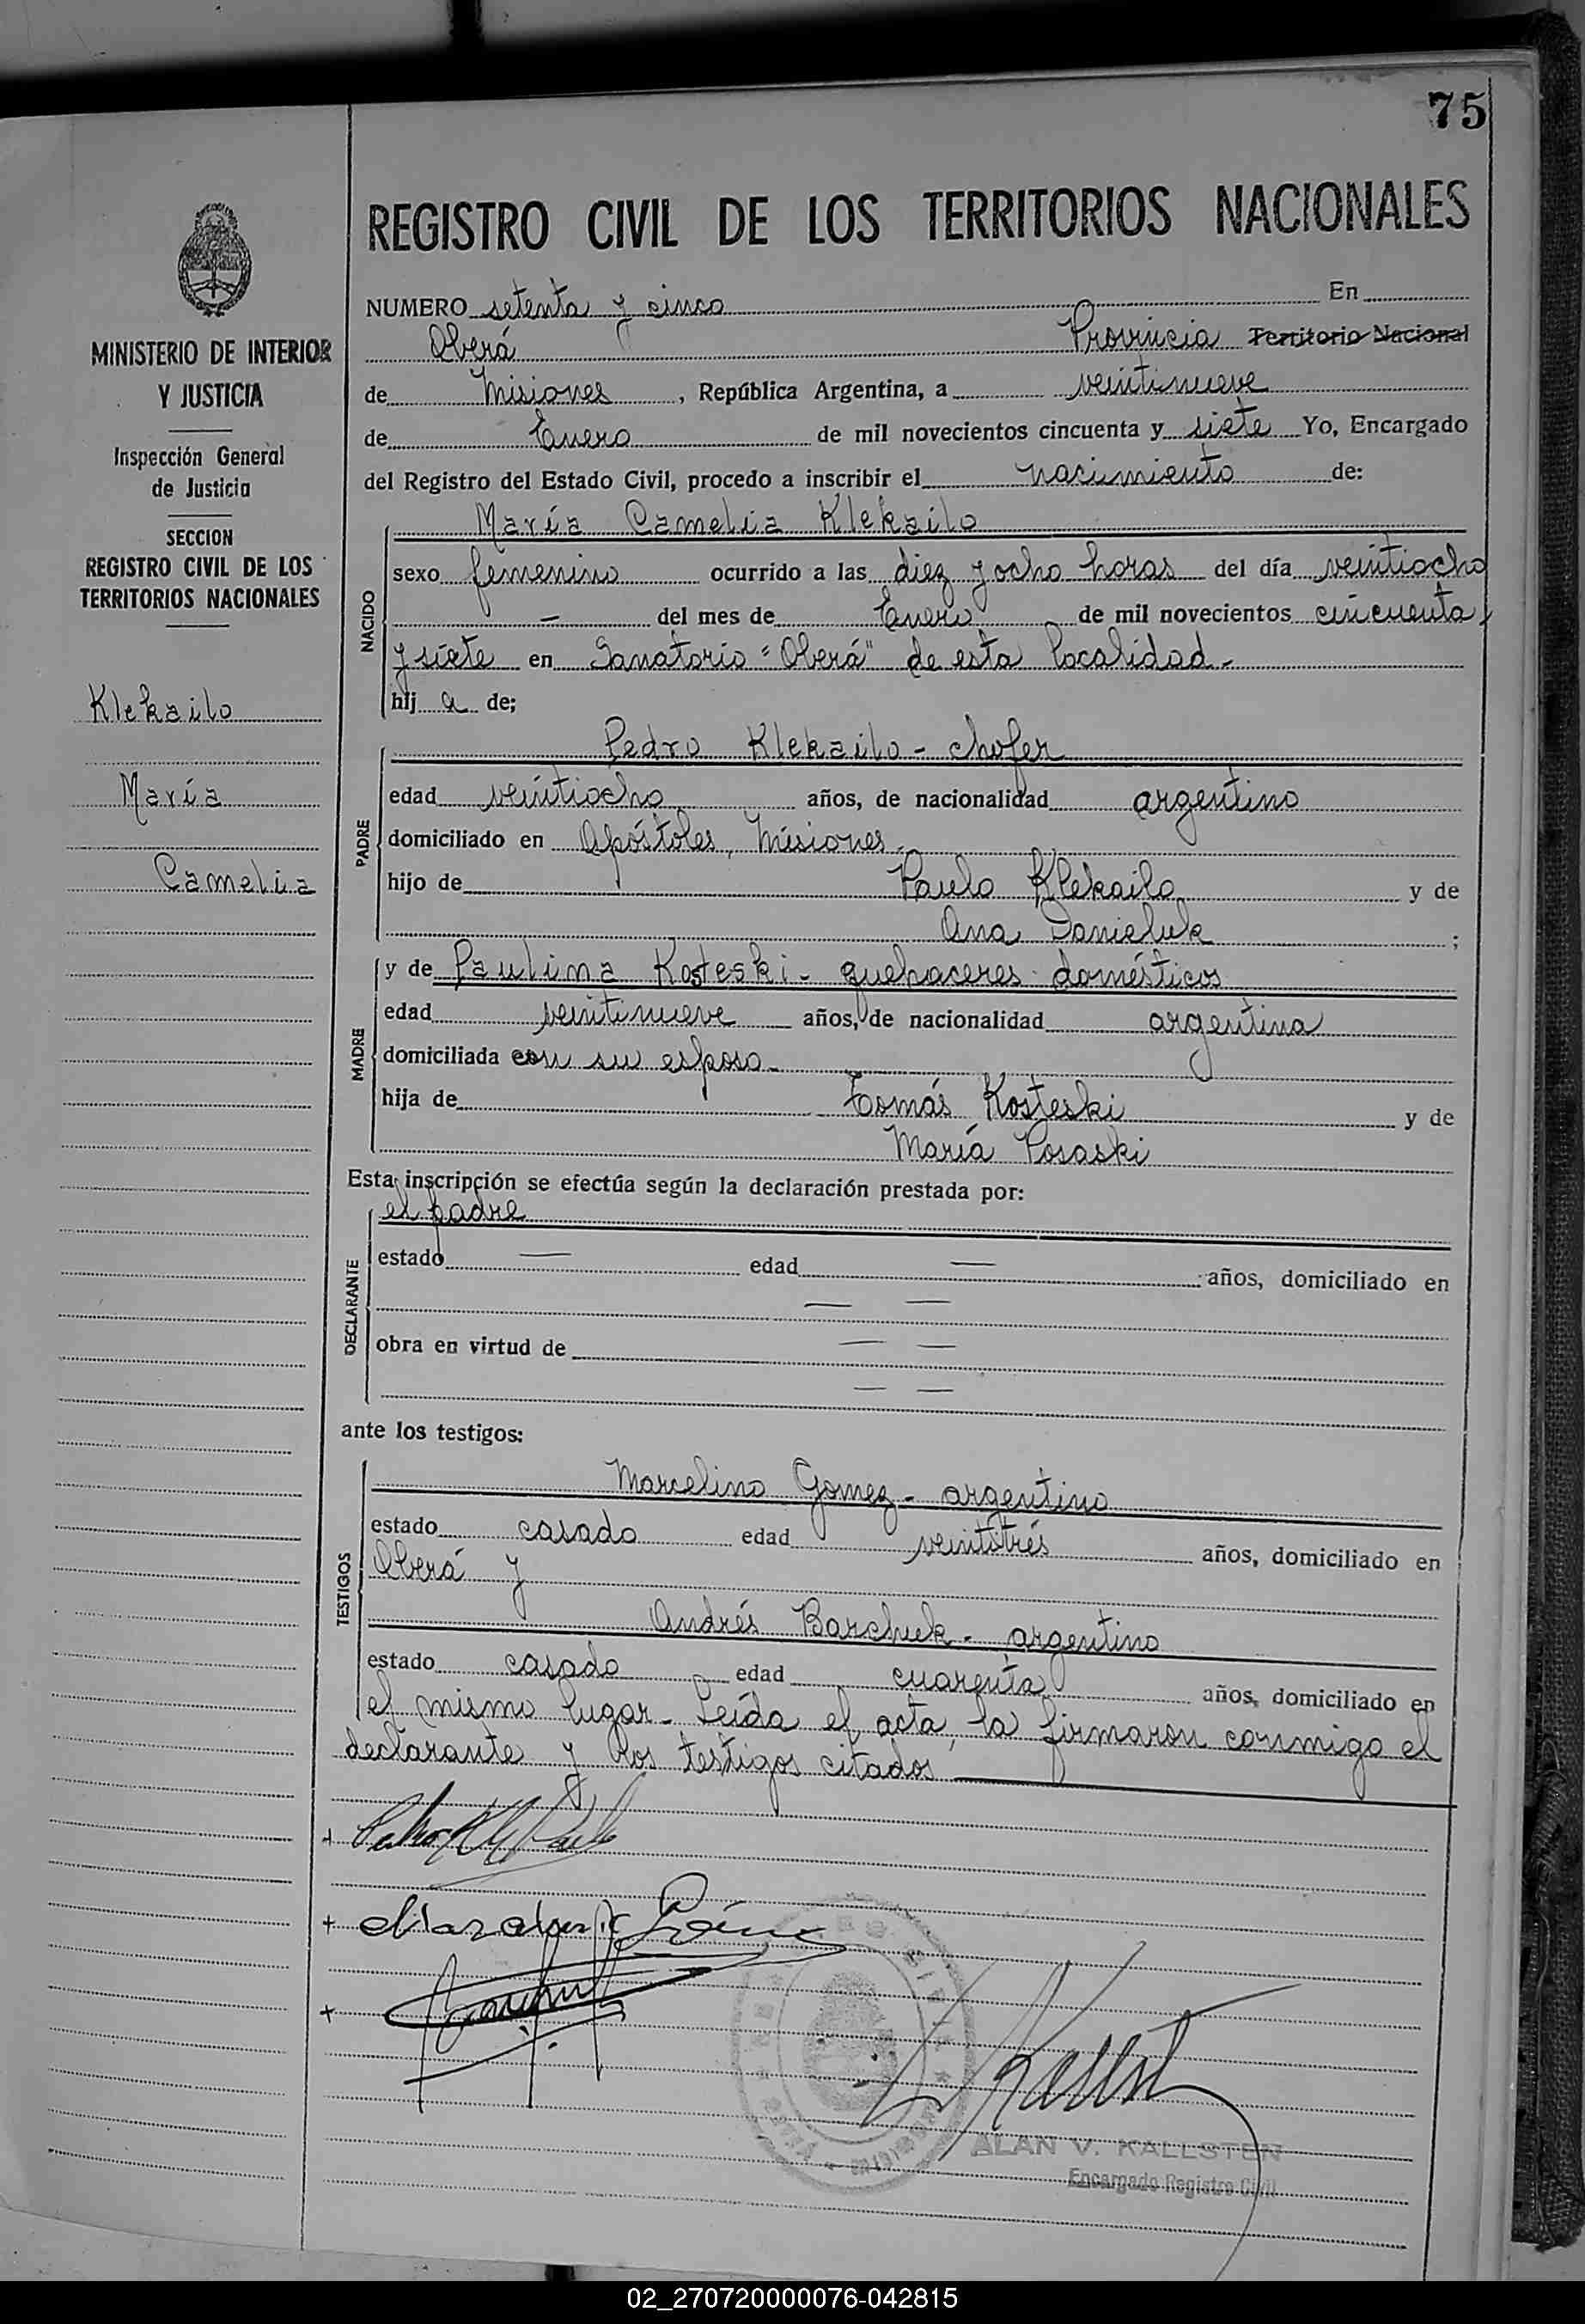 75
REGISTRO CIVIL DE LOS TERRITORIOS NACIONALES
MINISTERIO DE INTERIOR
Y JUSTICIA
Inspección General
de Justicia
SECCION
REGISTRO CIVIL DE LOS
TERRITORIOS NACIONALES
Klekailo
María
Camelia
NUMERO setenta y cinco En
Oberá Provincia Territorio Nacional
de Misiones, República Argentina, a veintinueve
de Enero de mil novecientos cincuenta y siete Yo, Encargado
del Registro del Estado Civil, procedo a inscribir el nacimiento de:
NACIDO
María Camelia Klekailo
sexo femenino ocurrido a las diez y ocho horas del día veintiocho
— del mes de Enero de mil novecientos cincuenta
y siete en Sanatorio "Oberá" de esta localidad.-
hij a de;
PADRE
Pedro Klekailo - chofer
edad veintiocho años, de nacionalidad argentino
domiciliado en Apóstoles, Misiones.-
hijo de Paulo Klekailo y de
Ana Danieluk ;
MADRE
y de Paulina Kosteski - quehaceres domésticos
edad veintinueve años, de nacionalidad argentina
domiciliada con su esposo.-
hija de Tomás Kosteski y de
María Posaski
Esta inscripción se efectúa según la declaración prestada por:
DECLARANTE
el padre
estado — edad — años, domiciliado en
— —
obra en virtud de — —
— —
ante los testigos:
TESTIGOS
Marcelino Gomez - argentino
estado casado edad veintitrés años, domiciliado en
Oberá y
Andrés Barchuk - argentino
estado casado edad cuarenta años, domiciliado en
el mismo lugar.- Leída el acta, la firmaron conmigo el
declarante y los testigos citados
ALAN V. KALLSTEN
Encargado Registro Civil
02_270720000076-042815